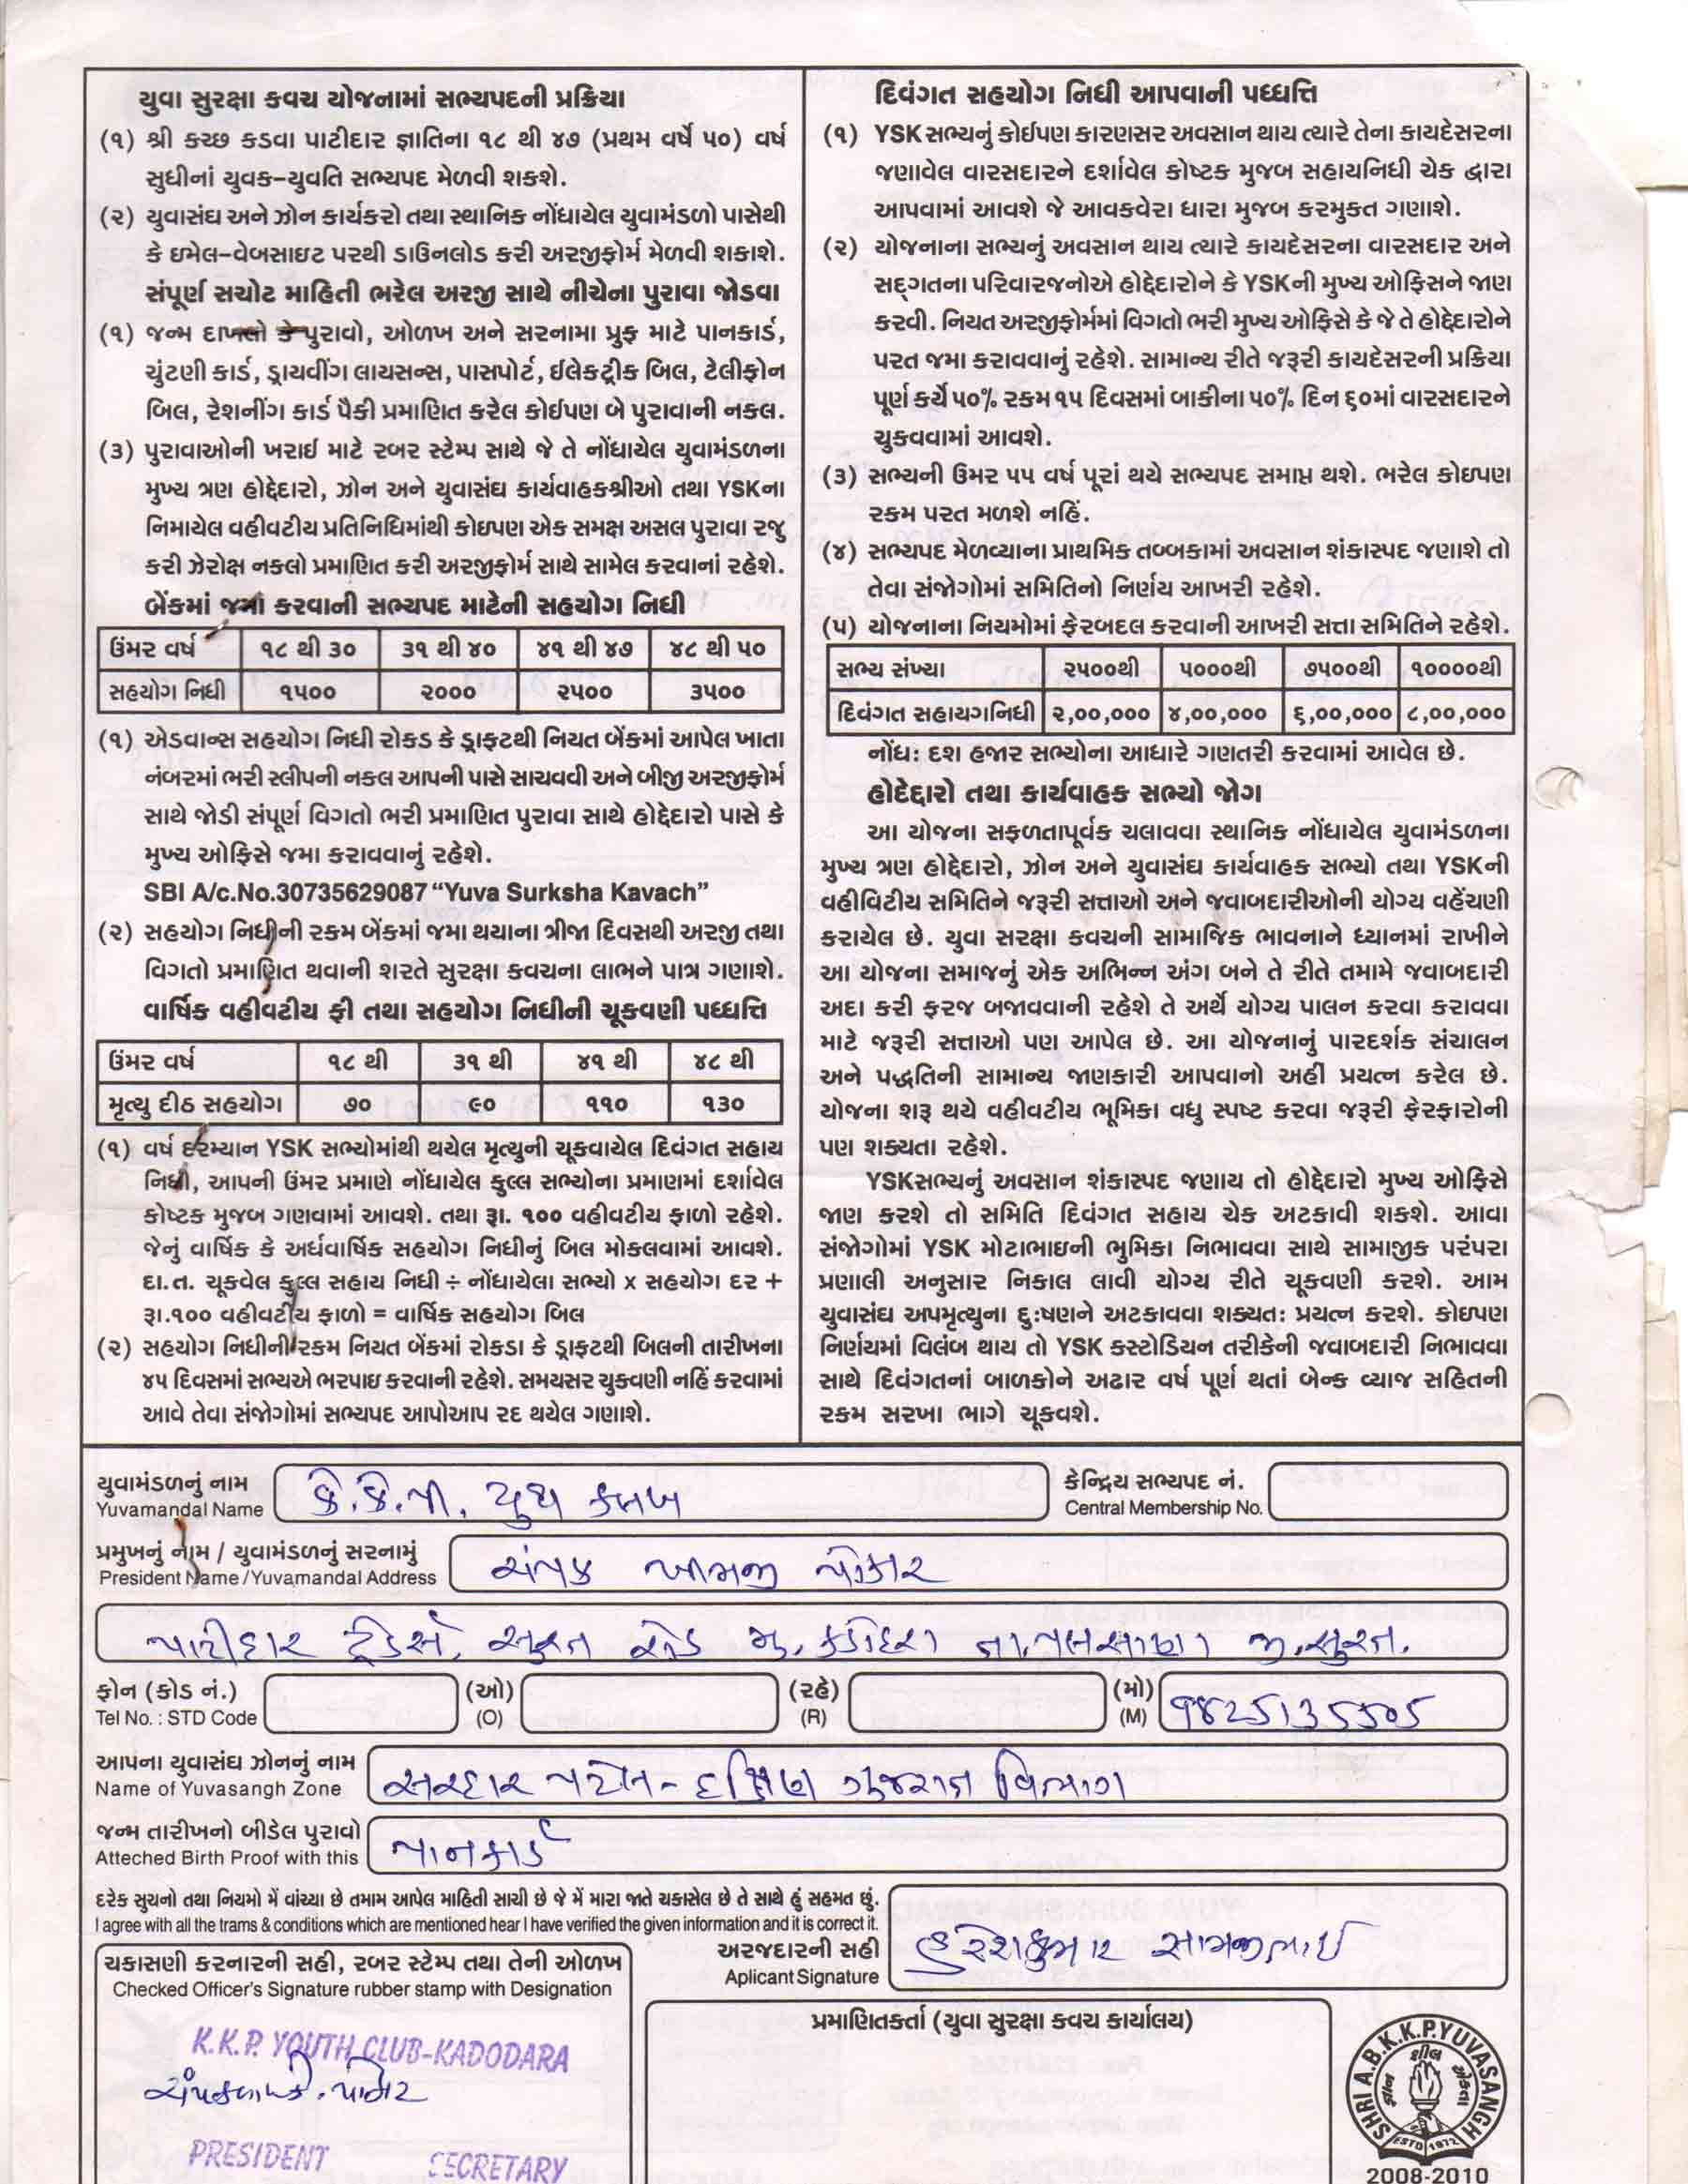 યુવા સુરક્ષા કવચ યોજનામાં સભ્યપદની પ્રક્રિયા
(૧) શ્રી કચ્છ કડવા પાટીદાર જ્ઞાતિના ૧૮ થી ૪૭ (પ્રથમ વર્ષે ૫૦) વર્ષ
સુધીનાં યુવક-યુવતિ સભ્યપદ મેળવી શકશે.
(૨) યુવાસંઘ અને ઝોન કાર્યકરો તથા સ્થાનિક નોંધાયેલ યુવામંડળો પાસેથી
કે ઇમેલ-વેબસાઇટ પરથી ડાઉનલોડ કરી અરજીફોર્મ મેળવી શકાશે.
સંપૂર્ણ સચોટ માહિતી ભરેલ અરજી સાથે નીચેના પુરાવા જોડવા
(૧) જન્મ દાખલો કે પુરાવો, ઓળખ અને સરનામા પ્રુફ માટે પાનકાર્ડ,
ચુંટણી કાર્ડ, ડ્રાયવીંગ લાયસન્સ, પાસપોર્ટ, ઈલેકટ્રીક બિલ, ટેલીફોન
બિલ, રેશનીંગ કાર્ડ પૈકી પ્રમાણિત કરેલ કોઈપણ બે પુરાવાની નકલ.
(૩) પુરાવાઓની ખરાઈ માટે રબર સ્ટેમ્પ સાથે જે તે નોંધાયેલ યુવામંડળના
મુખ્ય ત્રણ હોદ્દેદારો, ઝોન અને યુવાસંઘ કાર્યવાહકશ્રીઓ તથા YSKના
નિમાયેલ વહીવટીય પ્રતિનિધિમાંથી કોઇપણ એક સમક્ષ અસલ પુરાવા રજુ
કરી ઝેરોક્ષ નકલો પ્રમાણિત કરી અરજીફોર્મ સાથે સામેલ કરવાનાં રહેશે.
બેંકમાં જમા કરવાની સભ્યપદ માટેની સહયોગ નિધી
ઉંમર વર્ષ ૧૮ થી ૩૦ ૩૧ થી ૪૦ ૪૧ થી ૪૭ ૪૮ થી ૫૦
સહયોગ નિધી ૧૫૦૦ ૨૦૦૦ ૨૫૦૦ ૩૫૦૦
(૧) એડવાન્સ સહયોગ નિધી રોકડ કે ડ્રાફટથી નિયત બેંકમાં આપેલ ખાતા
નંબરમાં ભરી સ્લીપની નકલ આપની પાસે સાચવવી અને બીજી અરજીફોર્મ
સાથે જોડી સંપૂર્ણ વિગતો ભરી પ્રમાણિત પુરાવા સાથે હોદ્દેદારો પાસે કે
મુખ્ય ઓફિસે જમા કરાવવાનું રહેશે.
SBI A/c.No.30735629087 “Yuva Surksha Kavach”
(૨) સહયોગ નિધીની રકમ બેંકમાં જમા થયાના ત્રીજા દિવસથી અરજી તથા
વિગતો પ્રમાણિત થવાની શરતે સુરક્ષા કવચના લાભને પાત્ર ગણાશે.
વાર્ષિક વહીવટીય ફી તથા સહયોગ નિધીની ચૂકવણી પધ્ધત્તિ
ઉંમર વર્ષ ૧૮ થી ૩૧ થી ૪૧ થી ૪૮ થી
મૃત્યુ દીઠ સહયોગ ૭૦ ૯૦ ૧૧૦ ૧૩૦
(૧) વર્ષ દરમ્યાન YSK સભ્યોમાંથી થયેલ મૃત્યુની ચૂકવાયેલ દિવંગત સહાય
નિધી, આપની ઉંમર પ્રમાણે નોંધાયેલ કુલ્લ સભ્યોના પ્રમાણમાં દર્શાવેલ
કોષ્ટક મુજબ ગણવામાં આવશે. તથા રૂા. ૧૦૦ વહીવટીય ફાળો રહેશે.
જેનું વાર્ષિક કે અર્ધવાર્ષિક સહયોગ નિધીનું બિલ મોકલવામાં આવશે.
દા.ત. ચૂકવેલ કુલ્લ સહાય નિધી ÷ નોંધાયેલા સભ્યો x સહયોગ દર +
રૂા.૧૦૦ વહીવટીય ફાળો = વાર્ષિક સહયોગ બિલ
(૨) સહયોગ નિધીની રકમ નિયત બેંકમાં રોકડા કે ડ્રાફટથી બિલની તારીખના
૪૫ દિવસમાં સભ્યએ ભરપાઇ કરવાની રહેશે. સમયસર ચુકવણી નહિં કરવામાં
આવે તેવા સંજોગોમાં સભ્યપદ આપોઆપ રદ થયેલ ગણાશે.
દિવંગત સહયોગ નિધી આપવાની પધ્ધત્તિ
(૧) YSK સભ્યનું કોઈપણ કારણસર અવસાન થાય ત્યારે તેના કાયદેસરના
જણાવેલ વારસદારને દર્શાવેલ કોષ્ટક મુજબ સહાયનિધી ચેક દ્વારા
આપવામાં આવશે જે આવકવેરા ધારા મુજબ કરમુક્ત ગણાશે.
(૨) યોજનાના સભ્યનું અવસાન થાય ત્યારે કાયદેસરના વારસદાર અને
સદ્ગતના પરિવારજનોએ હોદ્દેદારોને કે YSKની મુખ્ય ઓફિસને જાણ
કરવી. નિયત અરજીફોર્મમાં વિગતો ભરી મુખ્ય ઓફિસે કે જે તે હોદ્દેદારોને
પરત જમા કરાવવાનું રહેશે. સામાન્ય રીતે જરૂરી કાયદેસરની પ્રક્રિયા
પૂર્ણ કર્યે ૫૦% રકમ ૧૫ દિવસમાં બાકીના ૫૦% દિન ૬૦માં વારસદારને
ચુકવવામાં આવશે.
(૩) સભ્યની ઉમર ૫૫ વર્ષ પૂરાં થયે સભ્યપદ સમાપ્ત થશે. ભરેલ કોઇપણ
રકમ પરત મળશે નહિં.
(૪) સભ્યપદ મેળવ્યાના પ્રાથમિક તબ્બકામાં અવસાન શંકાસ્પદ જણાશે તો
તેવા સંજોગોમાં સમિતિનો નિર્ણય આખરી રહેશે.
(૫) યોજનાના નિયમોમાં ફેરબદલ કરવાની આખરી સત્તા સમિતિને રહેશે.
સભ્ય સંખ્યા ૨૫૦૦થી ૫૦૦૦થી ૭૫૦૦થી ૧૦૦૦૦થી
દિવંગત સહાયગનિધી ૨,૦૦,૦૦૦ ૪,૦૦,૦૦૦ ૬,૦૦,૦૦૦ ૮,૦૦,૦૦૦
નોંધ: દશ હજાર સભ્યોના આધારે ગણતરી કરવામાં આવેલ છે.
હોદેદ્દારો તથા કાર્યવાહક સભ્યો જોગ
આ યોજના સફળતાપૂર્વક ચલાવવા સ્થાનિક નોંધાયેલ યુવામંડળના
મુખ્ય ત્રણ હોદ્દેદારો, ઝોન અને યુવાસંઘ કાર્યવાહક સભ્યો તથા YSKની
વહીવિટીય સમિતિને જરૂરી સત્તાઓ અને જવાબદારીઓની યોગ્ય વહેંચણી
કરાયેલ છે. યુવા સરક્ષા કવચની સામાજિક ભાવનાને ધ્યાનમાં રાખીને
આ યોજના સમાજનું એક અભિન્ન અંગ બને તે રીતે તમામે જવાબદારી
અદા કરી ફરજ બજાવવાની રહેશે તે અર્થે યોગ્ય પાલન કરવા કરાવવા
માટે જરૂરી સત્તાઓ પણ આપેલ છે. આ યોજનાનું પારદર્શક સંચાલન
અને પદ્ધતિની સામાન્ય જાણકારી આપવાનો અહીં પ્રયત્ન કરેલ છે.
યોજના શરૂ થયે વહીવટીય ભૂમિકા વધુ સ્પષ્ટ કરવા જરૂરી ફેરફારોની
પણ શક્યતા રહેશે.
YSKસભ્યનું અવસાન શંકાસ્પદ જણાય તો હોદ્દેદારો મુખ્ય ઓફિસે
જાણ કરશે તો સમિતિ દિવંગત સહાય ચેક અટકાવી શકશે. આવા
સંજોગોમાં YSK મોટાભાઇની ભુમિકા નિભાવવા સાથે સામાજીક પરંપરા
પ્રણાલી અનુસાર નિકાલ લાવી યોગ્ય રીતે ચૂકવણી કરશે. આમ
યુવાસંઘ અપમૃત્યુના દુઃષણને અટકાવવા શક્યતઃ પ્રયત્ન કરશે. કોઇપણ
નિર્ણયમાં વિલંબ થાય તો YSK કસ્ટોડિયન તરીકેની જવાબદારી નિભાવવા
સાથે દિવંગતનાં બાળકોને અઢાર વર્ષ પૂર્ણ થતાં બેન્ક વ્યાજ સહિતની
રકમ સરખા ભાગે ચૂકવશે.
યુવામંડળનું નામ કે.કે.પી. યુથ કલબ કેન્દ્રિય સભ્યપદ નં.
Yuvamandal Name Central Membership No.
પ્રમુખનું નામ / યુવામંડળનું સરનામું ચંપક ખીમજી પોકાર
President Name /Yuvamandal Address
પાટીદાર ટ્રેડર્સ, સુરત રોડ મુ. કડોદરા તા. પલસાણા જી. સુરત.
ફોન (કોડ નં.) (ઓ) (રહે) (મો)
Tel No. : STD Code (O) (R) (M)
આપના યુવાસંઘ ઝોનનું નામ સરદાર પટેલ - દક્ષિણ ગુજરાત વિભાગ
Name of Yuvasangh Zone
જન્મ તારીખનો બીડેલ પુરાવો પાનકાર્ડ
Atteched Birth Proof with this
દરેક સુચનો તથા નિયમો મેં વાંચ્યા છે તમામ આપેલ માહિતી સાચી છે જે મેં મારા જાતે ચકાસેલ છે તે સાથે હું સહમત છું.
I agree with all the trams & conditions which are mentioned hear I have verified the given information and it is correct it.
અરજદારની સહી હરેશકુમાર સામજીભાઈ
Aplicant Signature
ચકાસણી કરનારની સહી, રબર સ્ટેમ્પ તથા તેની ઓળખ
Checked Officer's Signature rubber stamp with Designation
પ્રમાણિતકર્તા (યુવા સુરક્ષા કવચ કાર્યાલય)
K.K.P. YOUTH CLUB-KADODARA
PRESIDENT SECRETARY
SHRI A.B.K.K.P.YUVASANGH
ESTD 1972
2008-2010